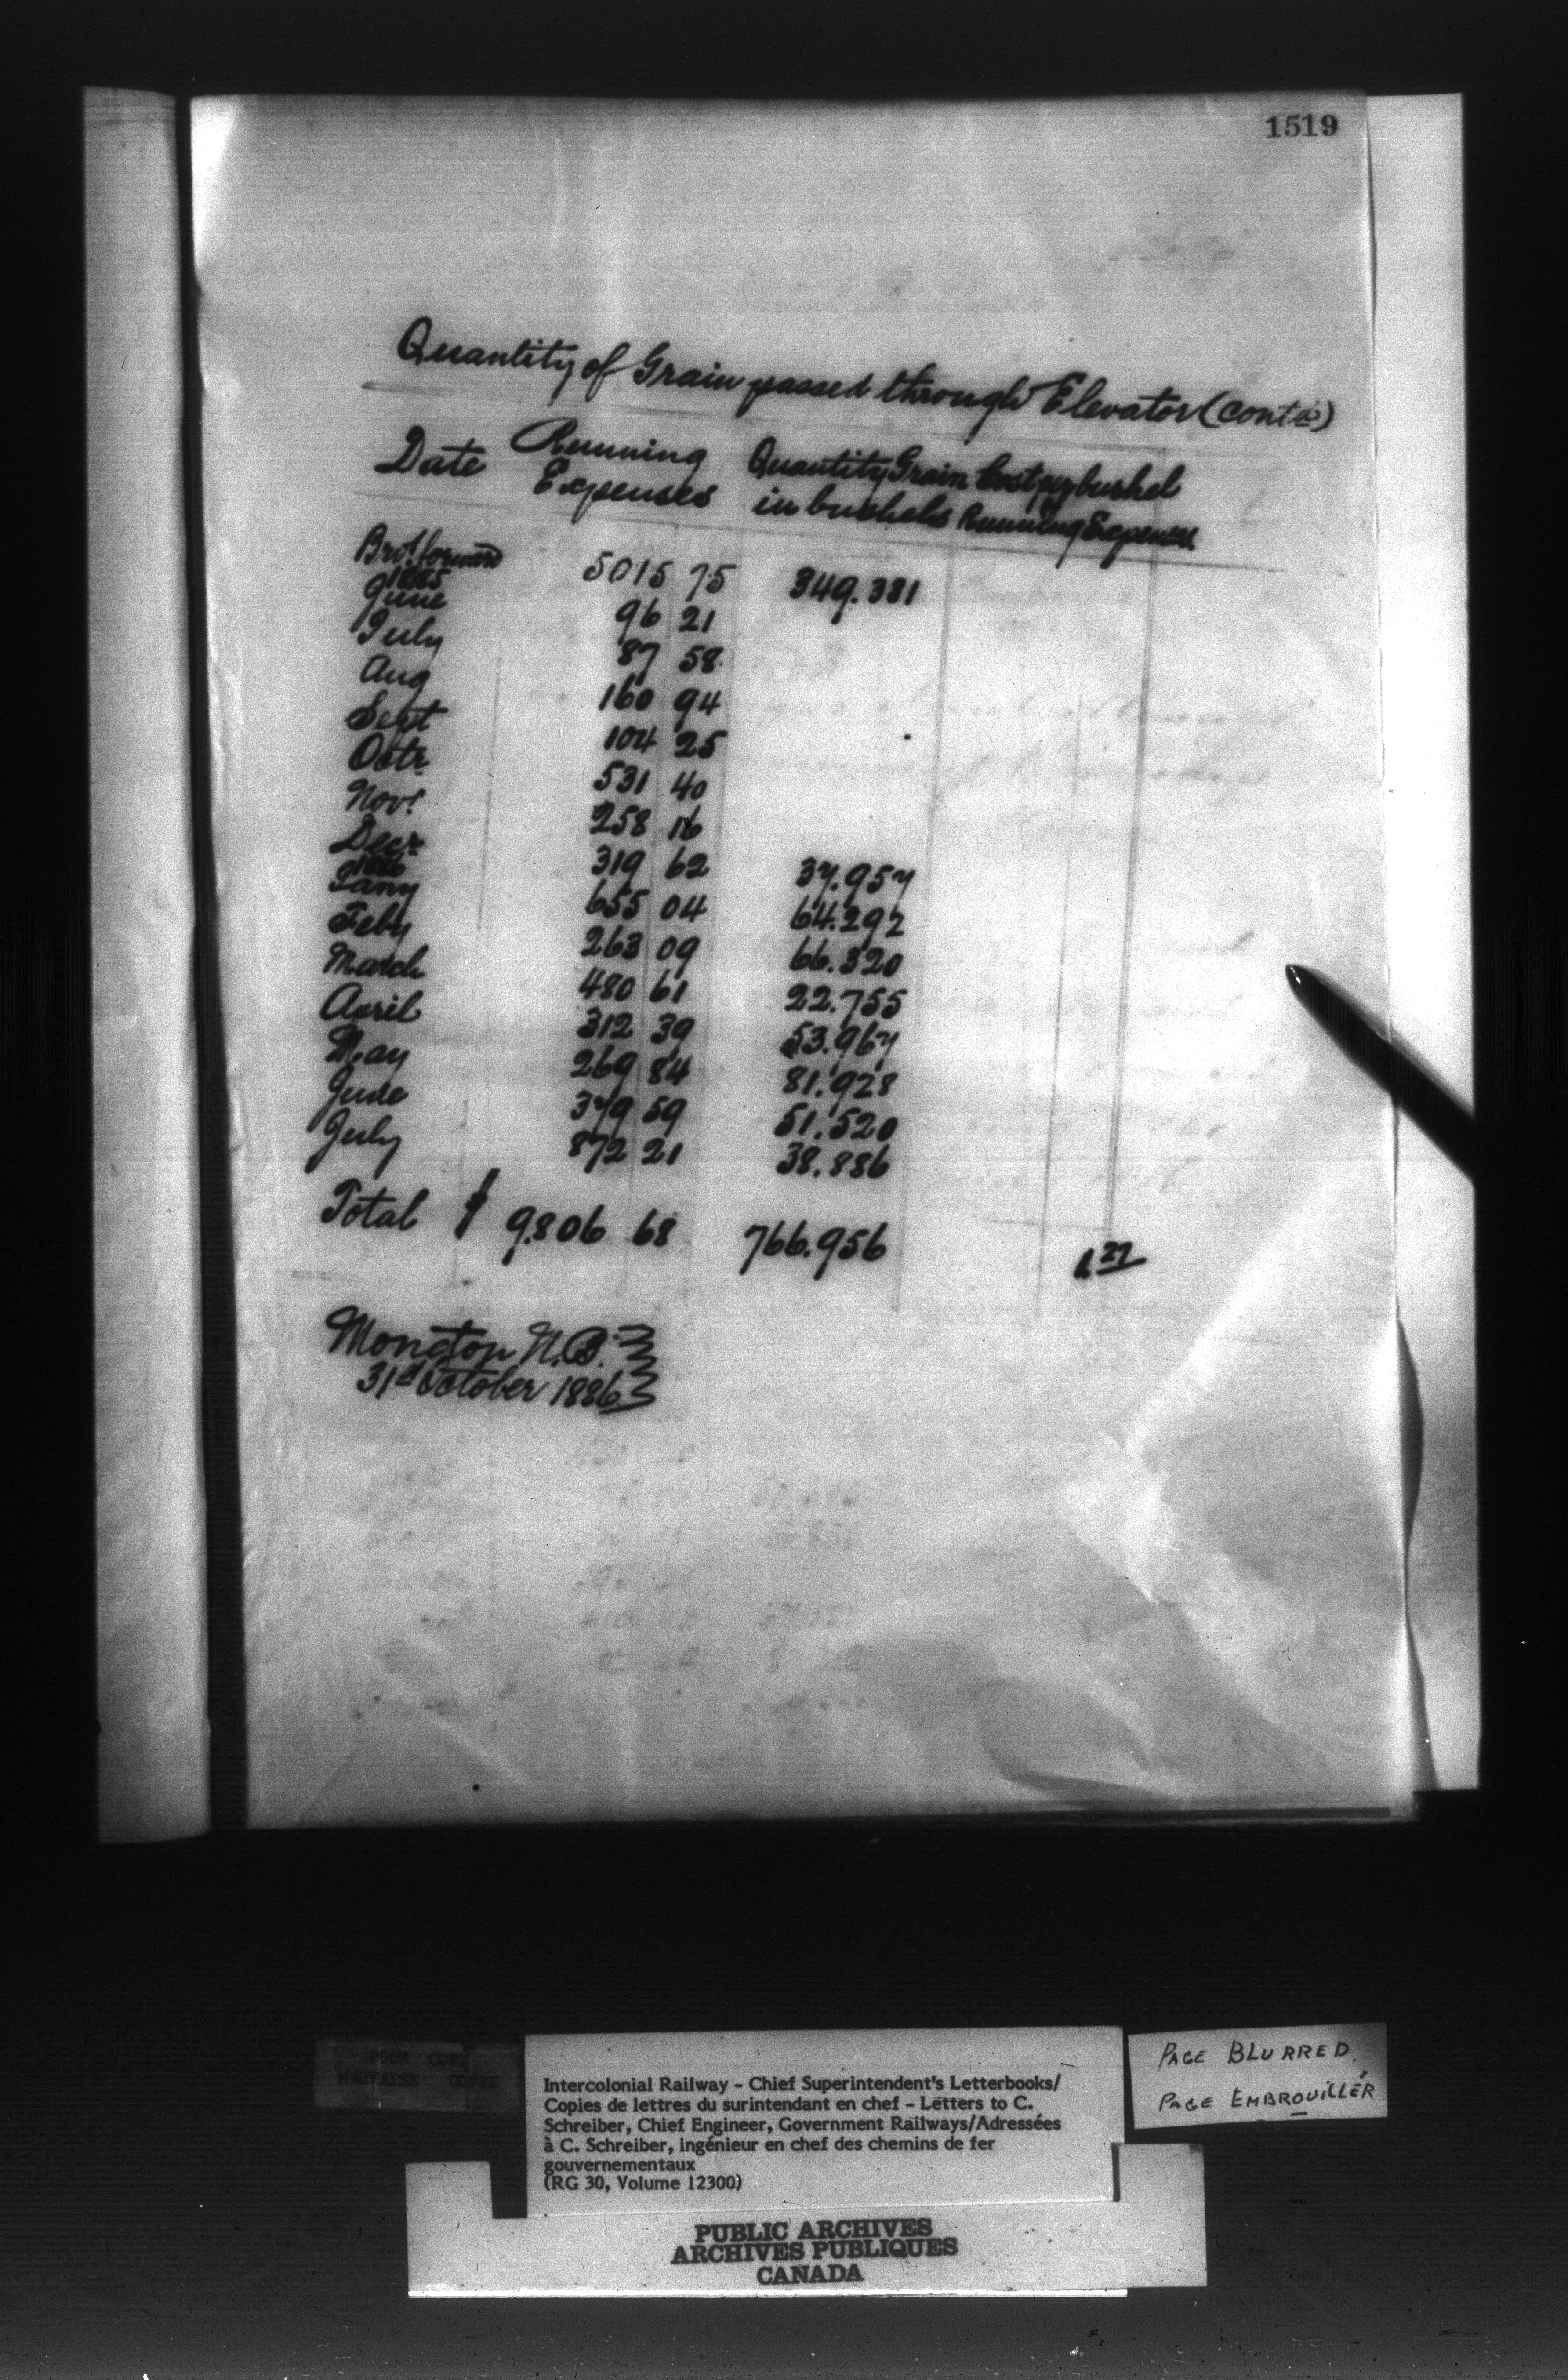 1519
Quantity of Grain passed through Elevator (Contd)
Date Running Expenses Quantity Grain in bushels Cost per bushel of Running Expenses
Brot forward 5015 75 349.331
1885
June 96 21
July 87 58
Aug 160 94
Sept 104 25
Octr 531 40
Novr 258 16
Decr 319 62 37.957
1886
Jany 655 04 64.292
Feby 263 09 66.320
March 480 61 22.755
April 312 39 53.967
May 269 84 81.928
June 379 59 51.520
July 872 21 38.886
Total $ 9806 68 766.956 1.27
Moncton N.B.
31st October 1886
POOR COPY
MAUVAISE COPIE
Intercolonial Railway - Chief Superintendent's Letterbooks/
Copies de lettres du surintendant en chef - Letters to C.
Schreiber, Chief Engineer, Government Railways/Adressées
à C. Schreiber, ingénieur en chef des chemins de fer
gouvernementaux
(RG 30, Volume 12300)
PAGE BLURRED
PAGE EMBROUILLÉR
PUBLIC ARCHIVES
ARCHIVES PUBLIQUES
CANADA